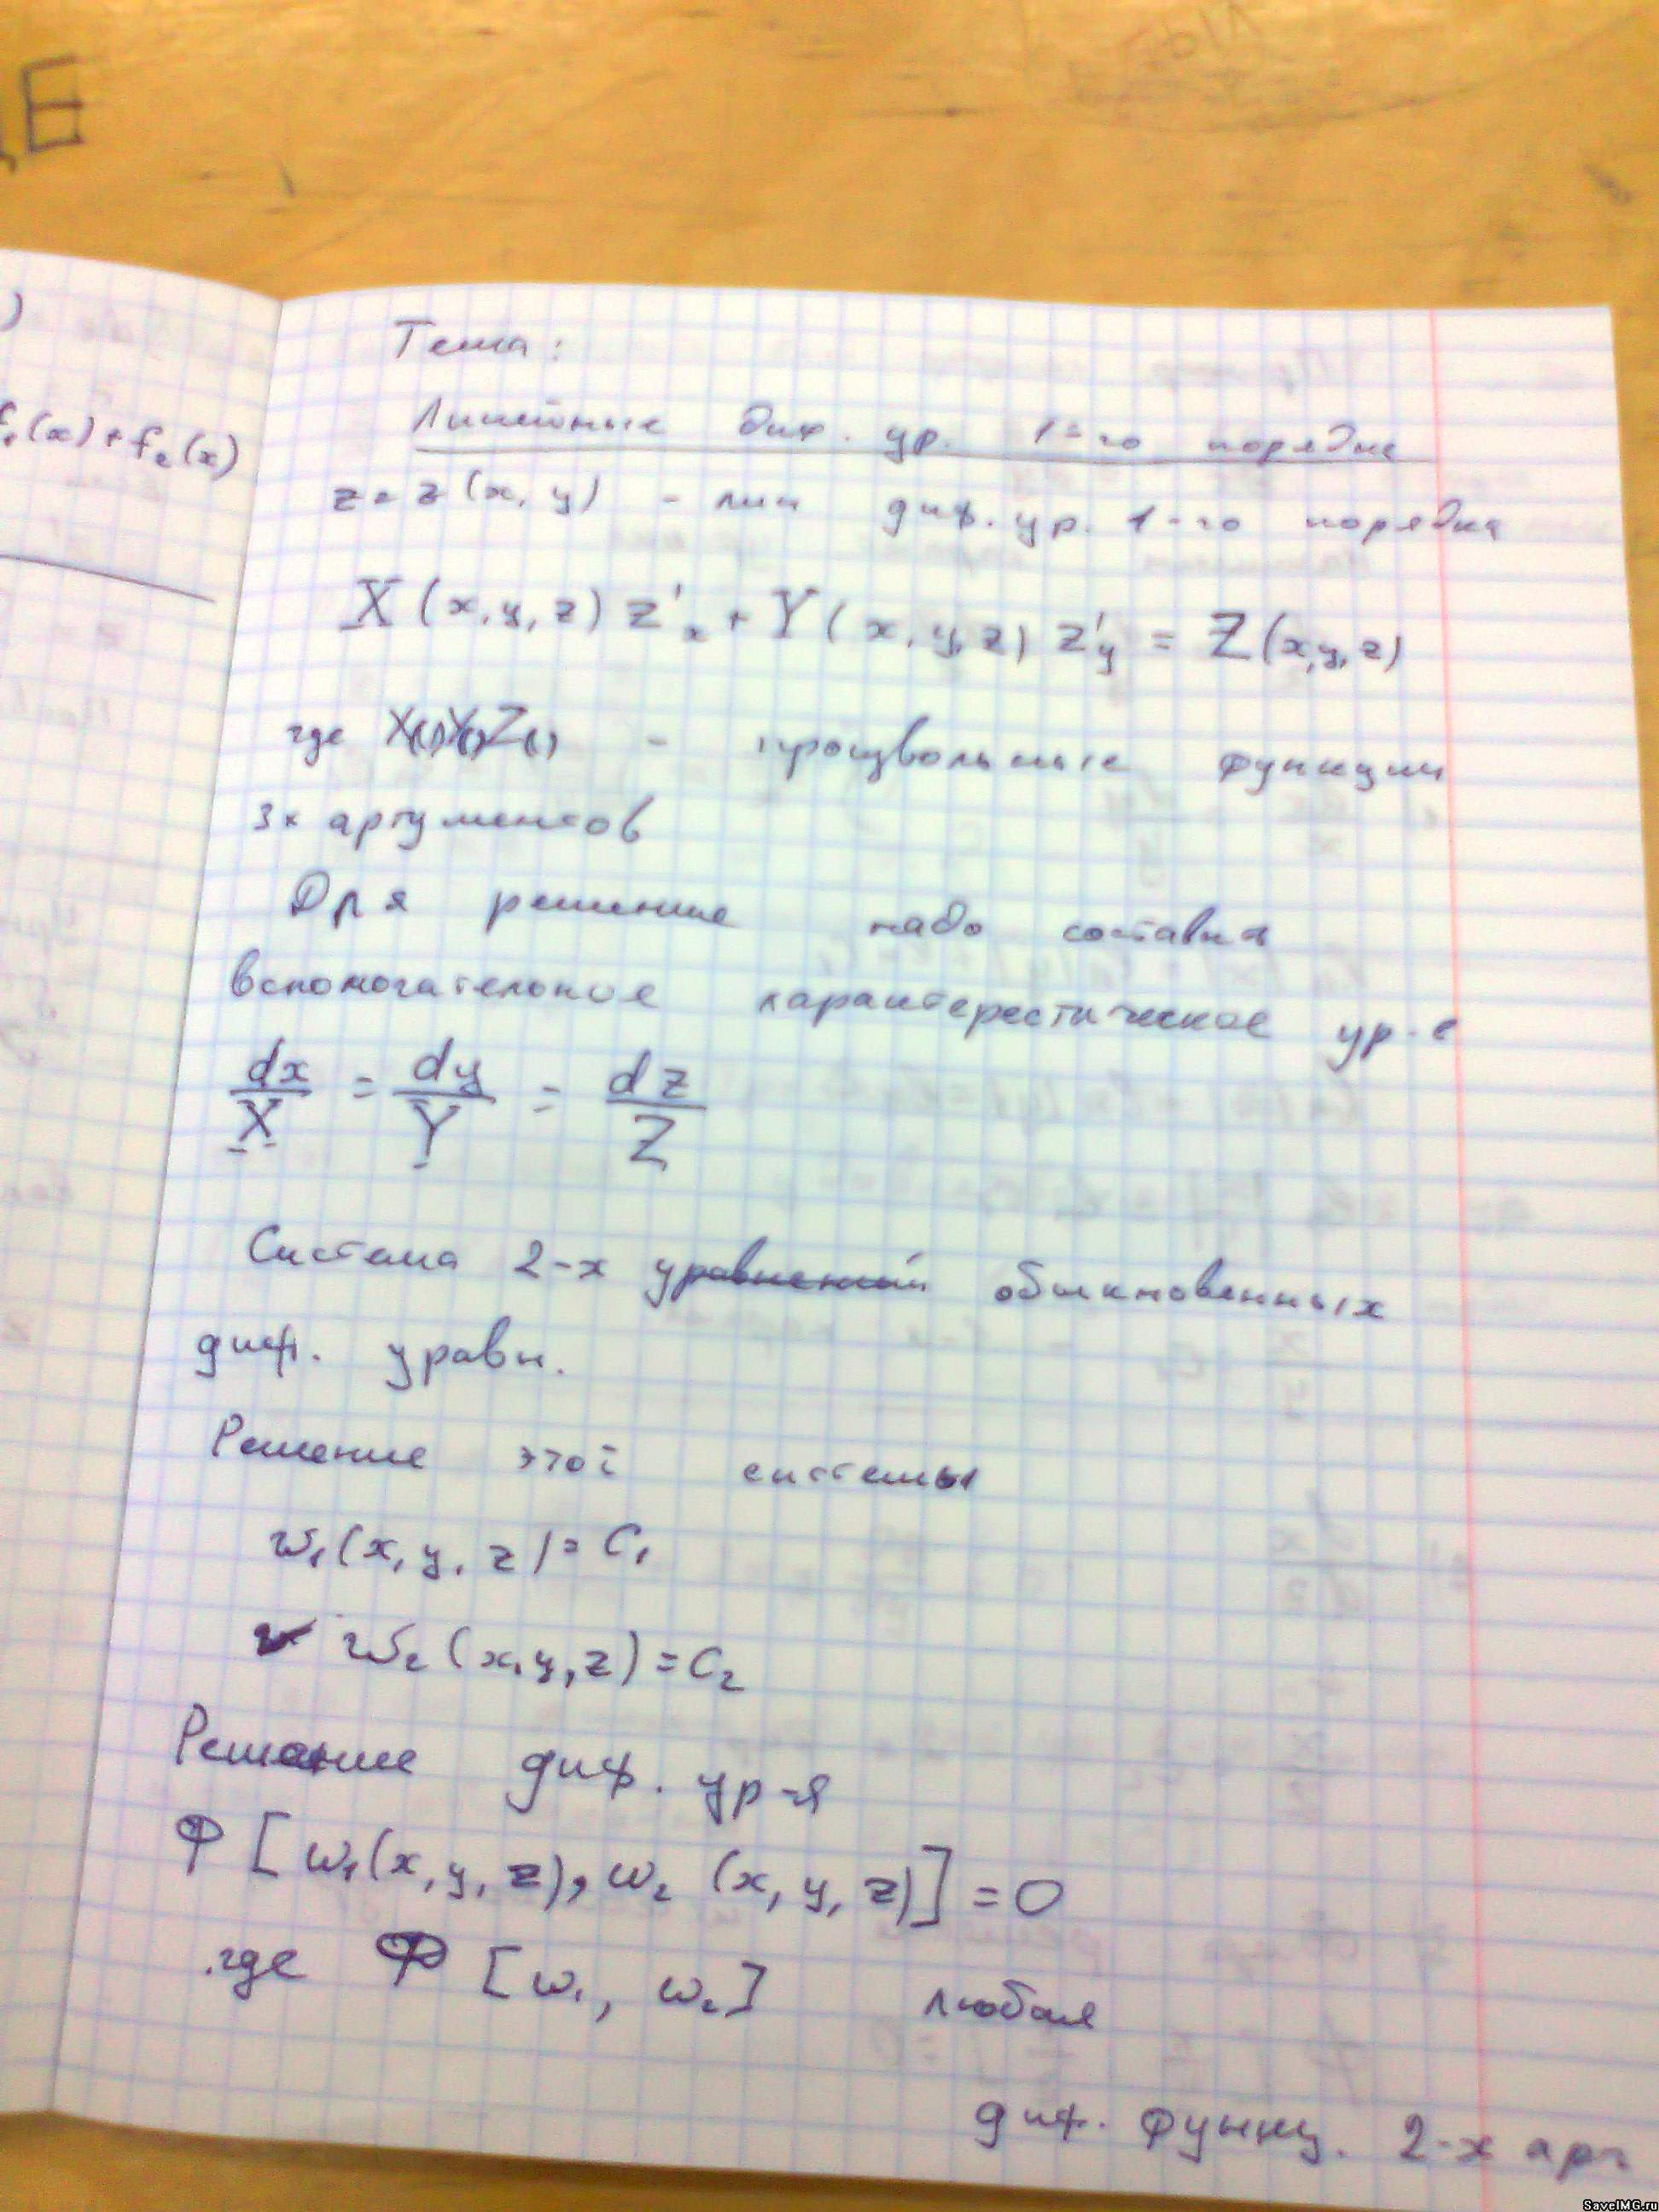 ДЕ
)
f₁(x)+f₂(x)
Тема:
Линейные диф. ур. 1-го порядка
z = z(x, y) - лин диф. ур. 1-го порядка
X(x, y, z) z'ₓ + Y(x, y, z) z'y = Z(x, y, z)
где X(,,)Y(,,)Z(,,) - произвольные функции
3х аргументов
Для решение надо составить
вспомогательное характерестическое ур-е
dx/X = dy/Y = dz/Z
Система 2-х уравнений обыкновенных
диф. уравн.
Решение этой системы
w₁(x, y, z) = C₁
w₂(x, y, z) = C₂
Решение диф. ур-я
Ф [ω₁(x, y, z), ω₂ (x, y, z)] = 0
где Ф [ω₁, ω₂] любая
диф. функц. 2-х арг
SaveIMG.ru